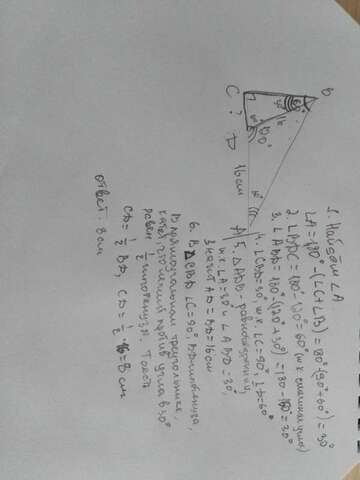 B
60°
30°
16
C
?
120°
D
16 см
30°
A
1. Найдём ∠A
∠A = 180° - (∠C + ∠B) = 180° - (90° + 60°) = 30°
2. ∠BDC = 180 - 120° = 60° (т.к. смежные углы)
3. ∠ABD = 180° - (120° + 30°) = 180 - 150° = 30°
4. ∠CBD = 30°, т.к. ∠C = 90°, ∠D = 60°
5. △ADB - равнобедренный,
т.к. ∠A = 30° и ∠ABD = 30°,
значит AD = BD = 16 см
6. В △CBD ∠C = 90°, BD гипотенуза,
В прямоугольном треугольнике,
катет, что лежит против угла в 30°
равен 1/2 гипотенузы. Тоесть
CD = 1/2 BD, CD = 1/2 · 16 = 8 см
Ответ: 8 см